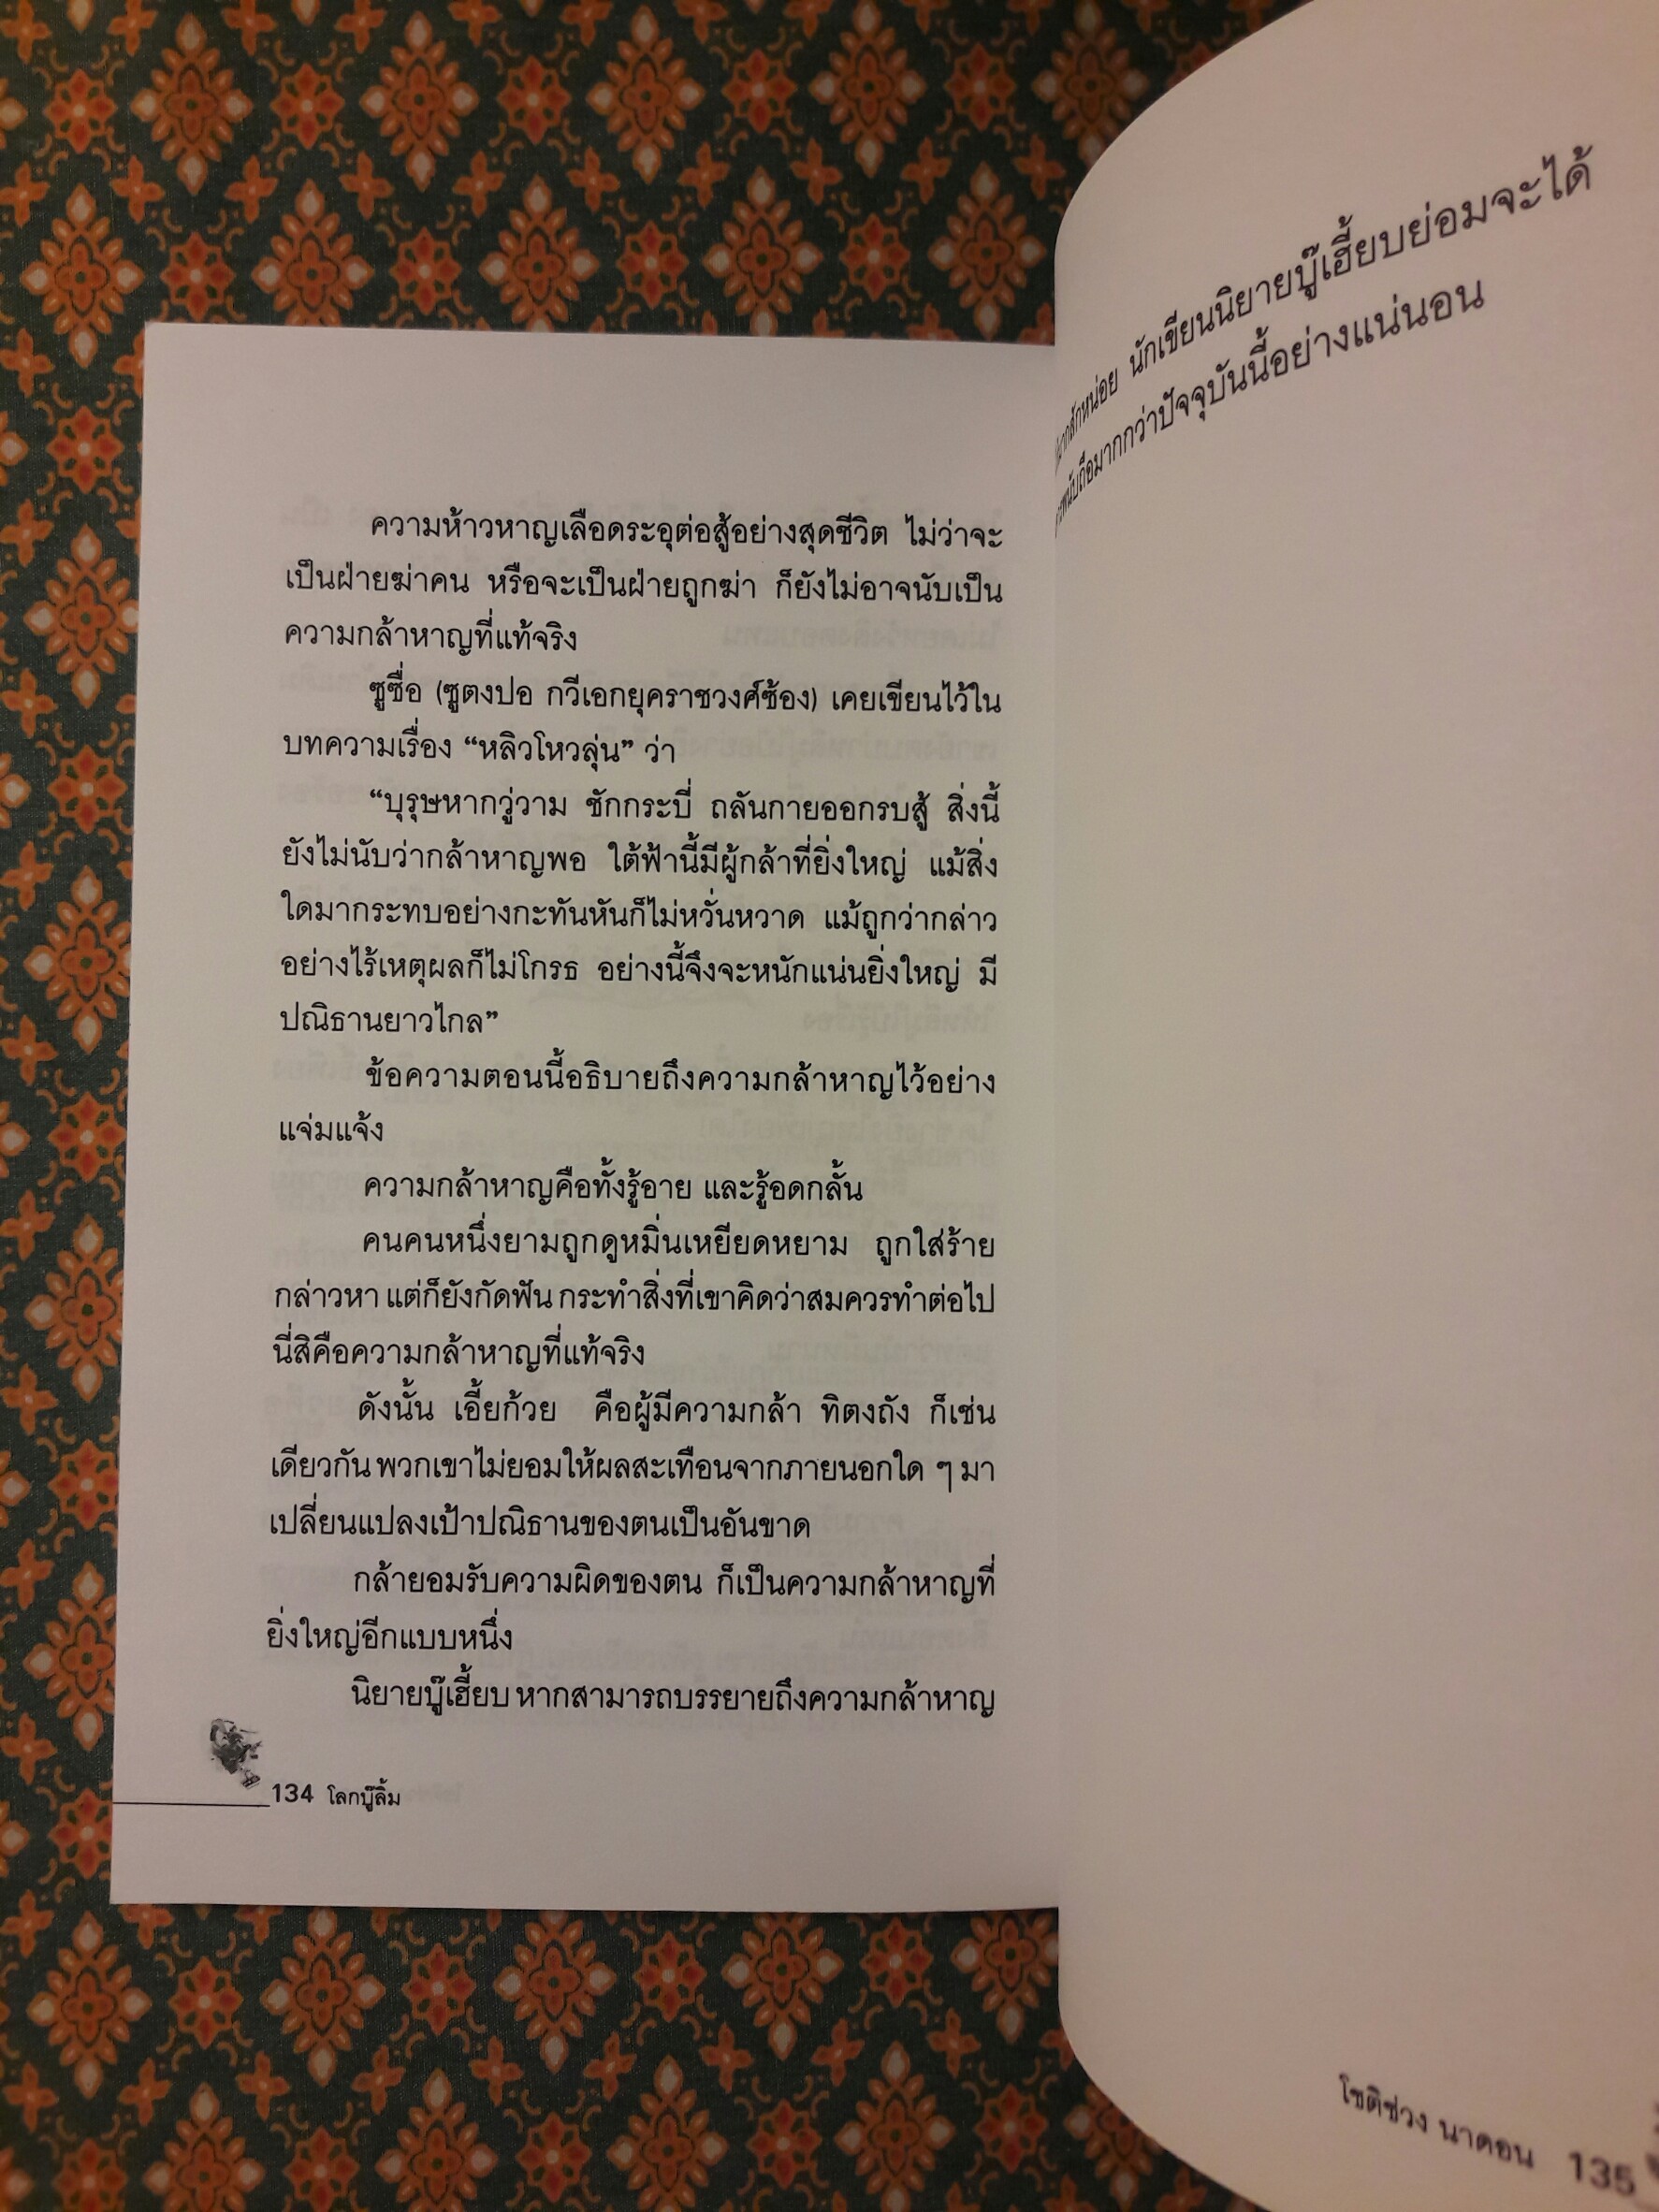 ความห้าวหาญเลือดระอุต่อสู้อย่างสุดชีวิต ไม่ว่าจะ
เป็นฝ่ายฆ่าคน หรือจะเป็นฝ่ายถูกฆ่า ก็ยังไม่อาจนับเป็น
ความกล้าหาญที่แท้จริง
ซูซื่อ (ซูตงปอ กวีเอกยุคราชวงศ์ซ้อง) เคยเขียนไว้ใน
บทความเรื่อง “หลิวโหวลุ่น” ว่า
“บุรุษหากวู่วาม ชักกระบี่ ถลันกายออกรบสู้ สิ่งนี้
ยังไม่นับว่ากล้าหาญพอ ใต้ฟ้านี้มีผู้กล้าที่ยิ่งใหญ่ แม้สิ่ง
ใดมากระทบอย่างกะทันหันก็ไม่หวั่นหวาด แม้ถูกว่ากล่าว
อย่างไร้เหตุผลก็ไม่โกรธ อย่างนี้จึงจะหนักแน่นยิ่งใหญ่ มี
ปณิธานยาวไกล”
ข้อความตอนนี้อธิบายถึงความกล้าหาญไว้อย่าง
แจ่มแจ้ง
ความกล้าหาญคือทั้งรู้อาย และรู้อดกลั้น
คนคนหนึ่งยามถูกดูหมิ่นเหยียดหยาม ถูกใส่ร้าย
กล่าวหา แต่ก็ยังกัดฟัน กระทำสิ่งที่เขาคิดว่าสมควรทำต่อไป
นี่สิคือความกล้าหาญที่แท้จริง
ดังนั้น เอี้ยก้วย คือผู้มีความกล้า ทิตงถัง ก็เช่น
เดียวกัน พวกเขาไม่ยอมให้ผลสะเทือนจากภายนอกใด ๆ มา
เปลี่ยนแปลงเป้าปณิธานของตนเป็นอันขาด
กล้ายอมรับความผิดของตน ก็เป็นความกล้าหาญที่
ยิ่งใหญ่อีกแบบหนึ่ง
นิยายบู๊เฮี้ยบ หากสามารถบรรยายถึงความกล้าหาญ
134 โลกบู๊ลิ้ม
นักเขียนนิยายบู๊เฮี้ยบย่อมจะได้
มากกว่าปัจจุบันนี้อย่างแน่นอน
โชติช่วง นาดอน 135